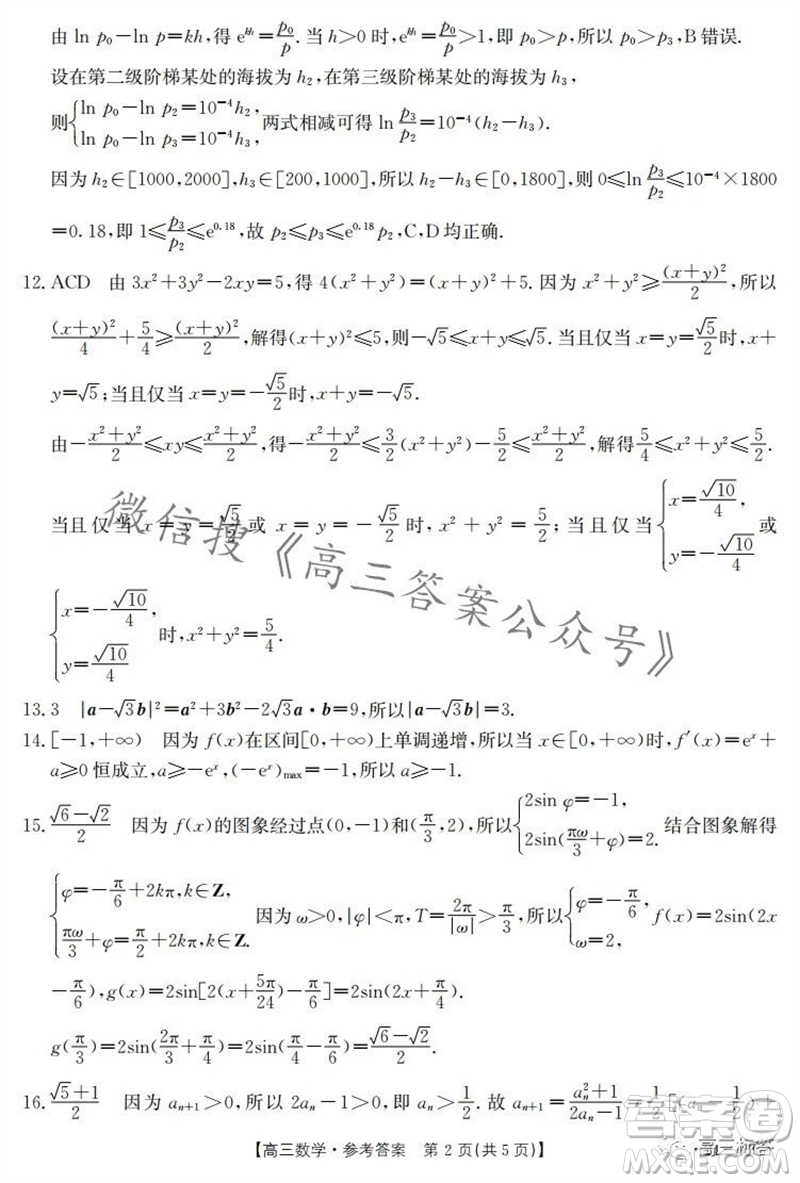 由 ln p₀−ln p=kh,得 e^{kh}=p₀/p.当 h>0 时,e^{kh}=p₀/p>1,即 p₀>p,所以 p₀>p,B 错误.
设在第二级阶梯某处的海拔为 h₂,在第三级阶梯某处的海拔为 h₃,
则{ln p₀−ln p₂=10⁻⁴h₂, ln p₀−ln p₃=10⁻⁴h₃, 两式相减可得 ln p₃/p₂=10⁻⁴(h₂−h₃).
因为 h₂∈[1000,2000],h₃∈[200,1000],所以 h₂−h₃∈[0,1800],则 0≤ln p₃/p₂≤10⁻⁴×1800
=0.18,即 1≤p₃/p₂≤e^{0.18},故 p₂≤p₃≤e^{0.18}p₂,C,D 均正确.
12.ACD 由 3x²+3y²−2xy=5,得 4(x²+y²)=(x+y)²+5.因为 x²+y²≥(x+y)²/2,所以
(x+y)²/4+5/4≥(x+y)²/2,解得(x+y)²≤5,则−√5≤x+y≤√5.当且仅当 x=y=√5/2时,x+
y=√5;当且仅当 x=y=−√5/2时,x+y=−√5.
由−(x²+y²)/2≤xy≤(x²+y²)/2,得−(x²+y²)/2≤3/2(x²+y²)−5/2≤(x²+y²)/2,解得5/4≤x²+y²≤5/2.
当且仅当 x=y=√5/2或 x=y=−√5/2时,x²+y²=5/2;当且仅当{x=√10/4, y=−√10/4 或
{x=−√10/4, y=√10/4 时,x²+y²=5/4.
微信搜《高三答案公众号》
13.3 |a−√3b|²=a²+3b²−2√3a·b=9,所以|a−√3b|=3.
14.[−1,+∞) 因为 f(x)在区间[0,+∞)上单调递增,所以当 x∈[0,+∞)时,f′(x)=eˣ+
a≥0 恒成立,a≥−eˣ,(−eˣ)max=−1.所以 a≥−1.
15.(√6−√2)/2 因为 f(x)的图象经过点(0,−1)和(π/3,2),所以{2sin φ=−1, 2sin(πω/3+φ)=2. 结合图象解得
{φ=−π/6+2kπ,k∈Z, πω/3+φ=π/2+2kπ,k∈Z. 因为 ω>0,|φ|<π,T=2π/|ω|>π/3,所以{φ=−π/6, ω=2, f(x)=2sin(2x
−π/6),g(x)=2sin[2(x+5π/24)−π/6]=2sin(2x+π/4).
g(π/3)=2sin(2π/3+π/4)=2sin(π/4−π/6)=(√6−√2)/2.
16.(√5+1)/2 因为 aₙ₊₁>0,所以 2aₙ−1>0,即 aₙ>1/2.因为 aₙ₊₁=(aₙ²+1)/(2aₙ−1)=1/2[(aₙ−1/2)+
【高三数学·参考答案 第 2 页(共 5 页)】